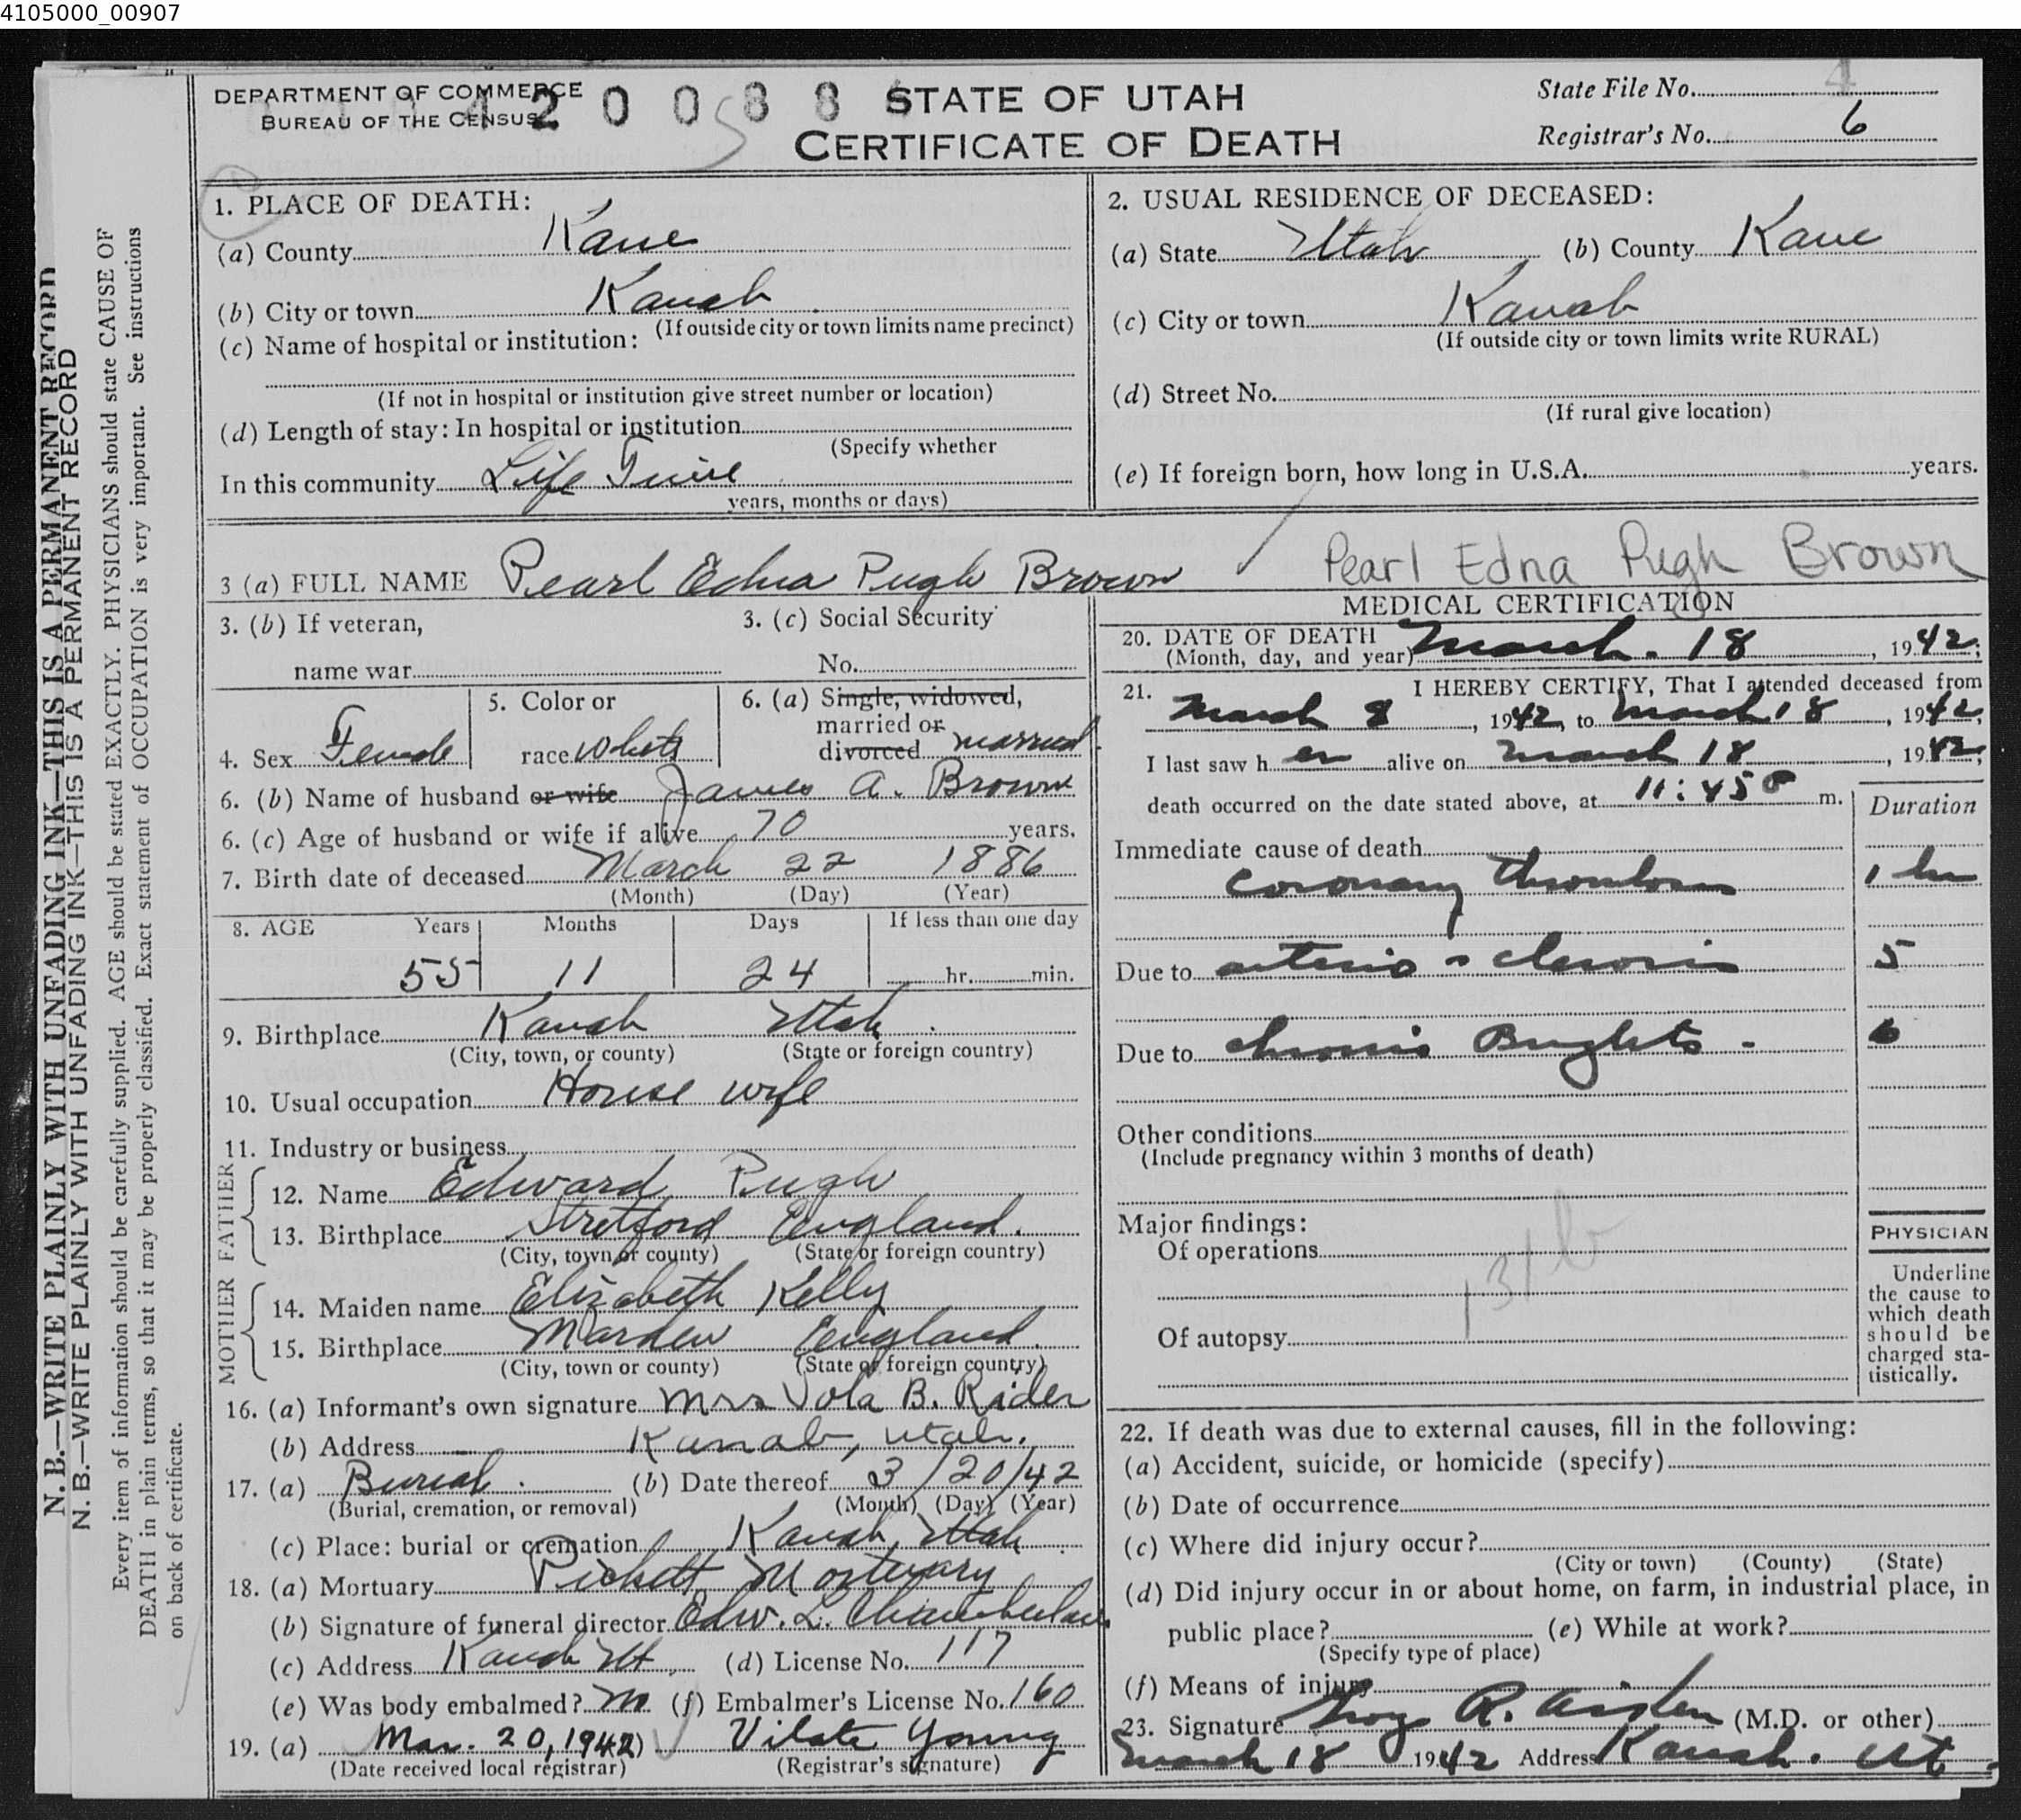 4105000_00907
DEPARTMENT OF COMMERCE
BUREAU OF THE CENSUS
4 2 0 0 8 8
STATE OF UTAH
CERTIFICATE OF DEATH
State File No. 4
Registrar's No. 6
N. B.—WRITE PLAINLY WITH UNFADING INK—THIS IS A PERMANENT RECORD
N. B.—WRITE PLAINLY WITH UNFADING INK—THIS IS A PERMANENT RECORD
Every item of information should be carefully supplied. AGE should be stated EXACTLY. PHYSICIANS should state CAUSE OF
DEATH in plain terms, so that it may be properly classified. Exact statement of OCCUPATION is very important. See instructions
on back of certificate.
1. PLACE OF DEATH:
(a) County Kane
(b) City or town Kanab
(If outside city or town limits name precinct)
(c) Name of hospital or institution:
(If not in hospital or institution give street number or location)
(d) Length of stay: In hospital or institution
(Specify whether
In this community Life Time
years, months or days)
2. USUAL RESIDENCE OF DECEASED:
(a) State Utah (b) County Kane
(c) City or town Kanab
(If outside city or town limits write RURAL)
(d) Street No.
(If rural give location)
(e) If foreign born, how long in U.S.A. years.
3 (a) FULL NAME Pearl Edna Pugh Brown
Pearl Edna Pugh Brown
3. (b) If veteran,
name war
3. (c) Social Security
No.
4. Sex Female
5. Color or
race White
6. (a) Single, widowed,
married or
divorced married
6. (b) Name of husband or wife James A. Brown
6. (c) Age of husband or wife if alive 70 years.
7. Birth date of deceased March 22 1886
(Month) (Day) (Year)
8. AGE Years Months Days If less than one day
55 11 24 hr. min.
9. Birthplace Kanab Utah.
(City, town, or county) (State or foreign country)
10. Usual occupation House wife
11. Industry or business
FATHER
12. Name Edward Pugh
13. Birthplace Stretford England.
(City, town or county) (State or foreign country)
MOTHER
14. Maiden name Elizabeth Kelly
15. Birthplace Marden England.
(City, town or county) (State or foreign country)
16. (a) Informant's own signature Mrs Vola B. Rider
(b) Address Kanab, Utah.
17. (a) Burial. (b) Date thereof 3/20/42
(Burial, cremation, or removal) (Month) (Day) (Year)
(c) Place: burial or cremation Kanab, Utah.
18. (a) Mortuary Pickett Mortuary
(b) Signature of funeral director Edw. L. Chamberlain
(c) Address Kanab Ut. (d) License No. 117
(e) Was body embalmed? (f) Embalmer's License No. 160
19. (a) Mar. 20, 1942) Vilate Young
(Date received local registrar) (Registrar's signature)
MEDICAL CERTIFICATION
20. DATE OF DEATH
(Month, day, and year) March. 18, 1942;
21. I HEREBY CERTIFY, That I attended deceased from
March 8, 1942, to March 18, 1942;
I last saw h er alive on March 18, 1942;
death occurred on the date stated above, at 11:45 m.
Duration
Immediate cause of death
Coronary Thrombosis 1 hr
Due to arterio-sclerosis 5
Due to chronic Brights - 6
Other conditions
(Include pregnancy within 3 months of death)
Major findings:
Of operations
131b
Of autopsy
PHYSICIAN
Underline
the cause to
which death
should be
charged sta-
tistically.
22. If death was due to external causes, fill in the following:
(a) Accident, suicide, or homicide (specify)
(b) Date of occurrence
(c) Where did injury occur?
(City or town) (County) (State)
(d) Did injury occur in or about home, on farm, in industrial place, in
public place? (e) While at work?
(Specify type of place)
(f) Means of injury
23. Signature R. Aiden (M.D. or other)
March 18 1942 Address Kanab. Ut.